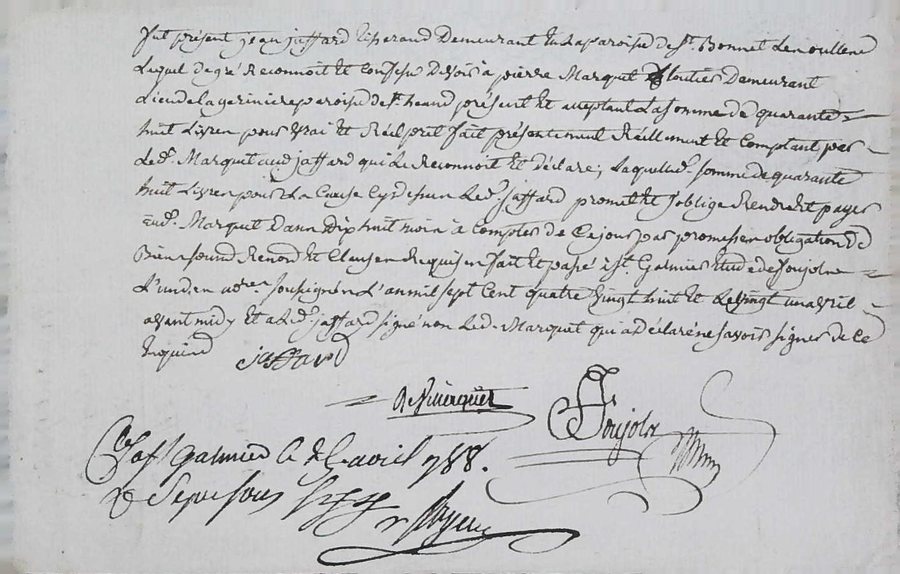 fut présent jean jaffard tisserand Demeurant En la paroisse de st. Bonnet Les oulles
Lequel de gré Reconnoit Et Confesse Devoir à pierre Marquet Demeurant
Lieu de la paroisse de st. heand présent Et acceptant La somme de quarante
huit Livres pour vrai Et Réel prêt fait présentement Réellement Et Comptant par
Led. Marquet aud jaffard qui Le Reconnoit Et déclare; Laquelle d. somme de quarante
huit Livres pour La Cause Cydessus Led. jaffard promet Et s'oblige Rendre Et payer
aud. Marquet Dans Dix huit mois à Compter de Ce jour par promesses obligation de
Biens soumd. Renond Et Clauses Requises fait Et passé à st. Galmier Etude de Soujolx
L'un d. notres soussignés L'an mil sept Cent quatre vingt huit Et Le vingt un avril
avant midy Et a Led. jaffard signé non Led. Marquet qui a Déclaré ne savoir signer de Ce
Enquis
jaffard
Soujolx
Ce a st galmier le avril 788.
sous